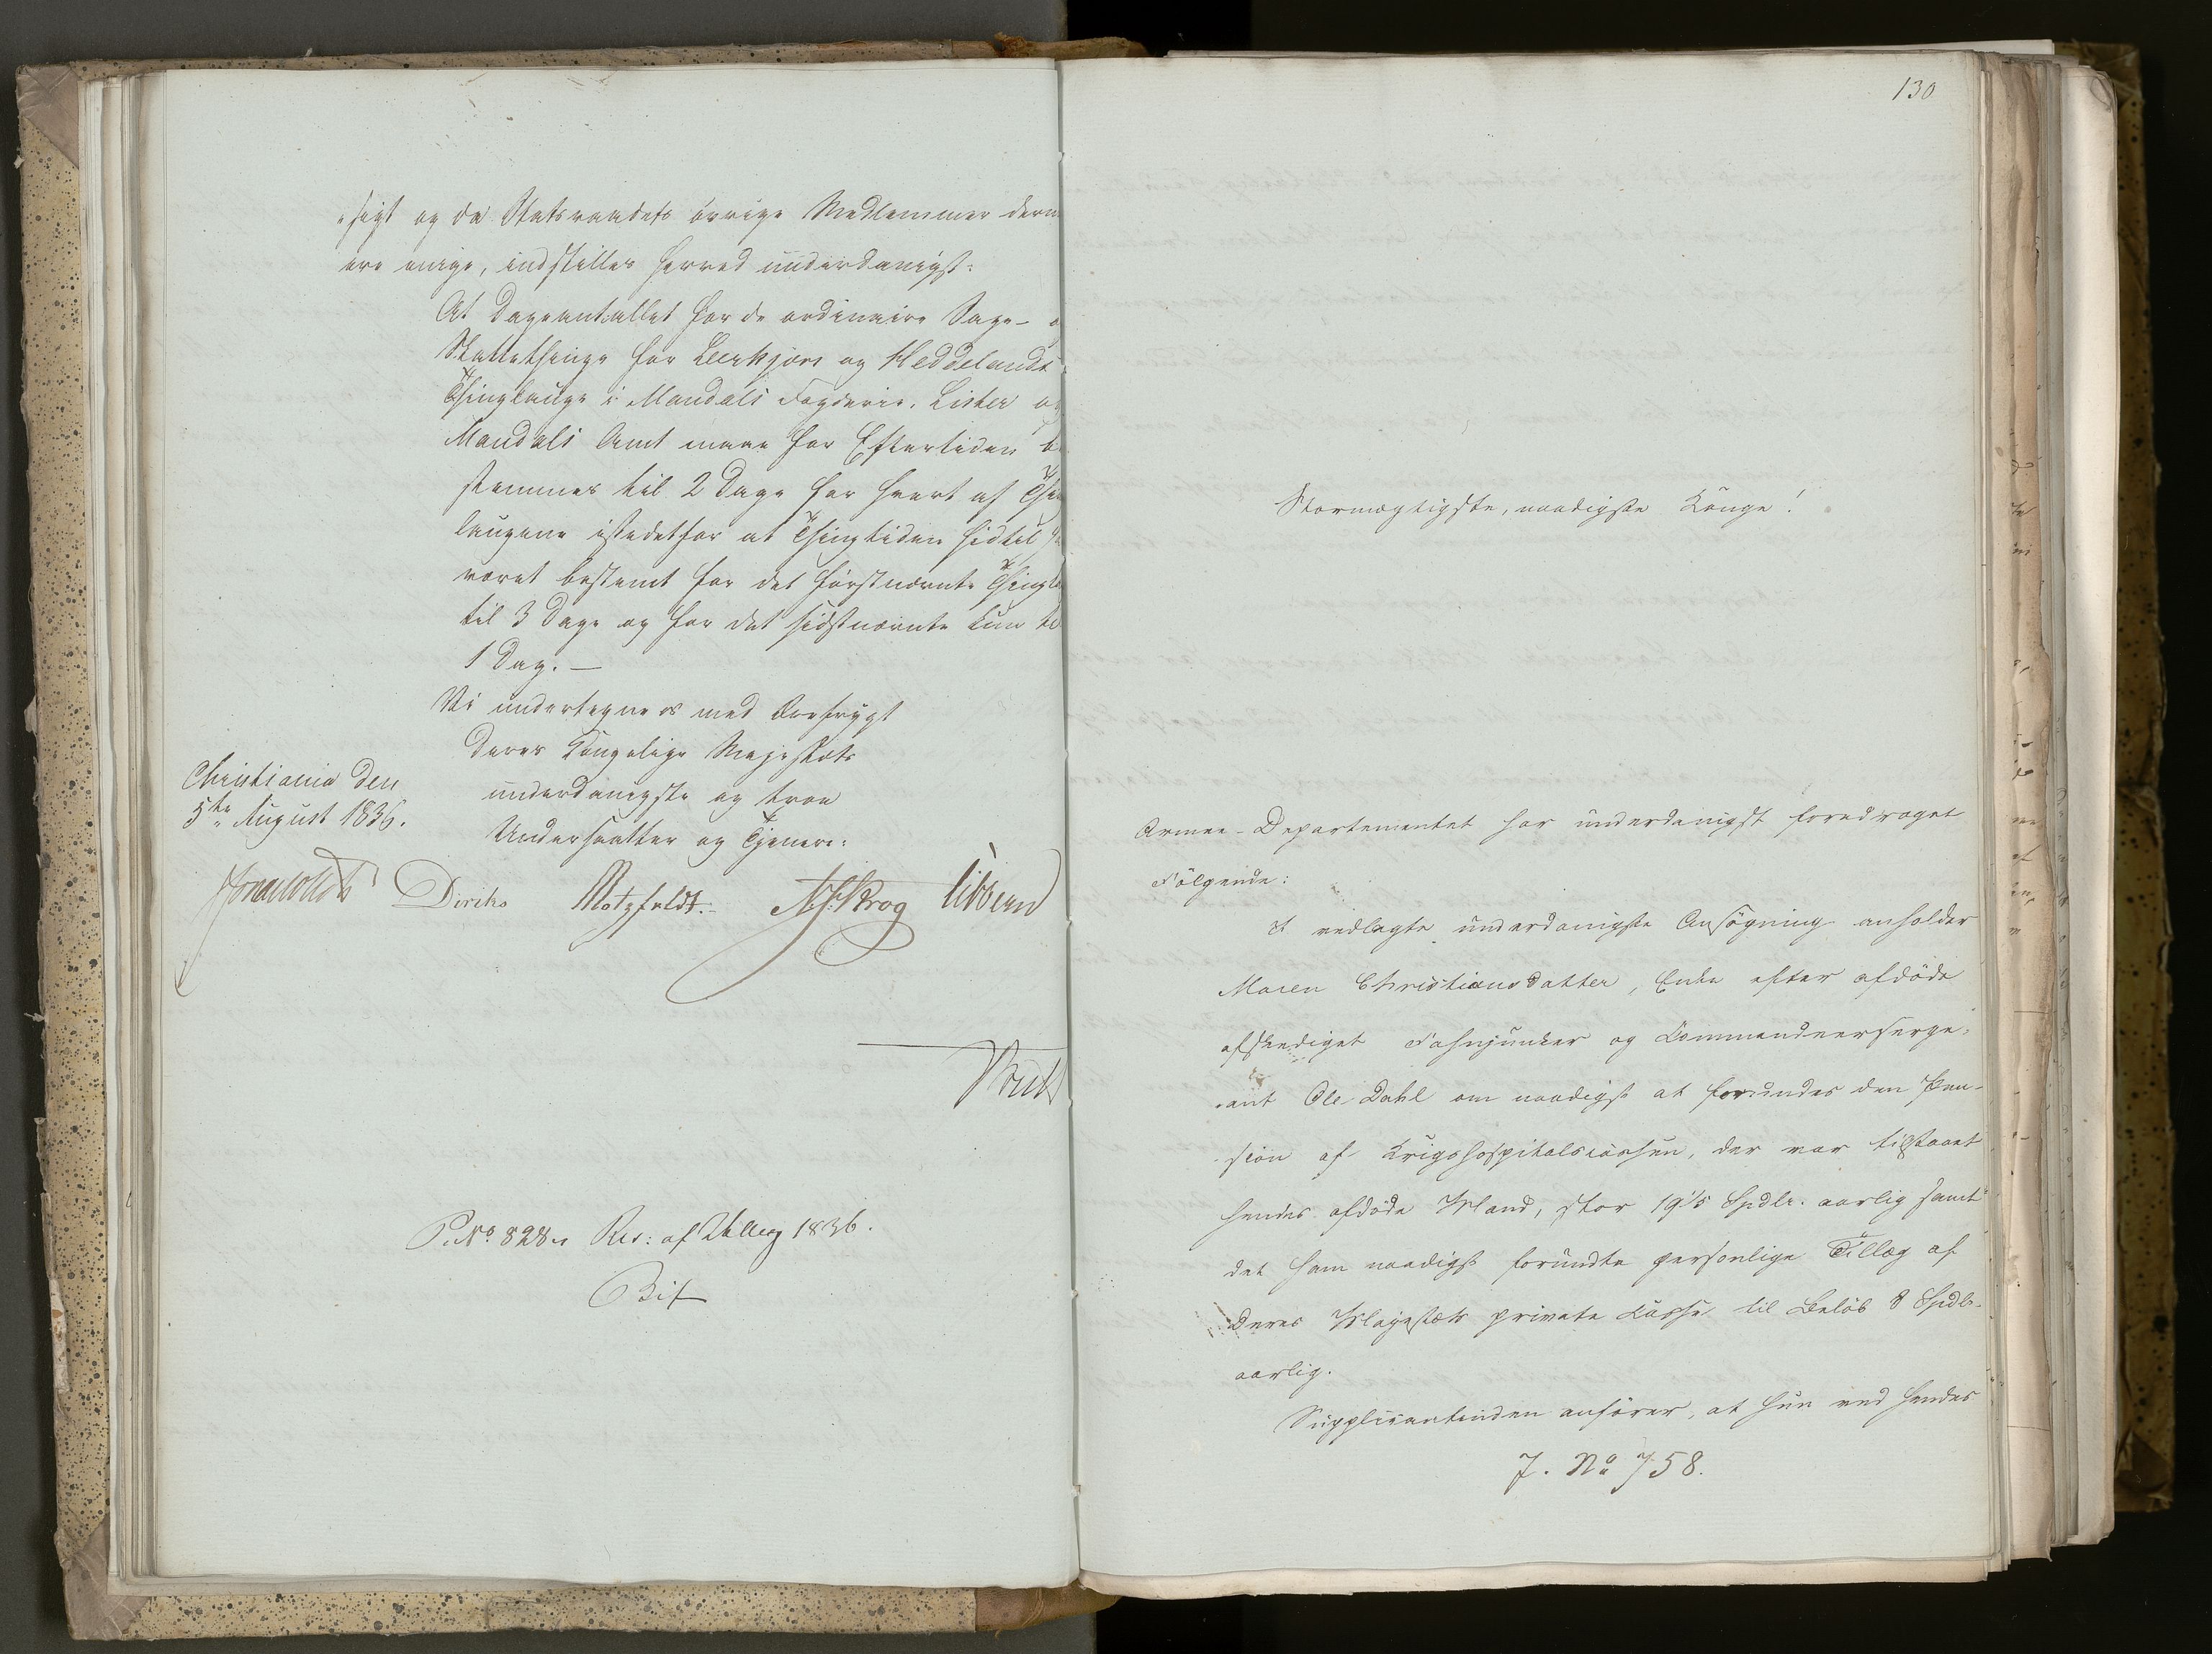 sigt og da Statsraadets övrige Medlemmer deri
ere enige, indstilles herved underdanigst:
At Dageantallet for de ordinaire Sage- o
Skattethinge for Leerkjærs og Heddelands
Thinglauge i Mandals Fogderie, Lister og
Mandals Amt maae for Eftertiden be
stemmes til 2 Dage for hvert af Thing
laugene istedetfor at Thingtiden hidtil
været bestemt for det förstnævnte Thingl
til 3 Dage og for det sidstnævnte kun til
1 Dag. —
Vi undertegne os med Ærefrygt
Deres Kongelige Majestæts
underdanigste og troe
Undersaatter og Tjenere:
Christiania den
5te August 1836.
Diriks Motzfeldt. Krog Vibbern
P. No. 828. Res: af 1836.
130
Stormægtigste, naadigste Konge!
Armee-Departementet har underdanigst foredraget
Fölgende:
I vedlagte underdanigste Ansögning anholder
Maren Christiansdatter, Enke efter afdöde
afskediget Fahnjunker og Commandeersergi-
ant Ole Dahl om naadigst at forundes den Pen-
sion af Krigshospitalscassen, der var tilstaaet
hendes afdöde Mand, stor 19 1/5 Spdlr. aarlig samt
det ham naadigst forundte personlige Tillæg af
Deres Majestæts private Casse til Belöb 8 Spdlr.
aarlig.
Supplicantinden anförer, at hun ved hendes
J. No 758.